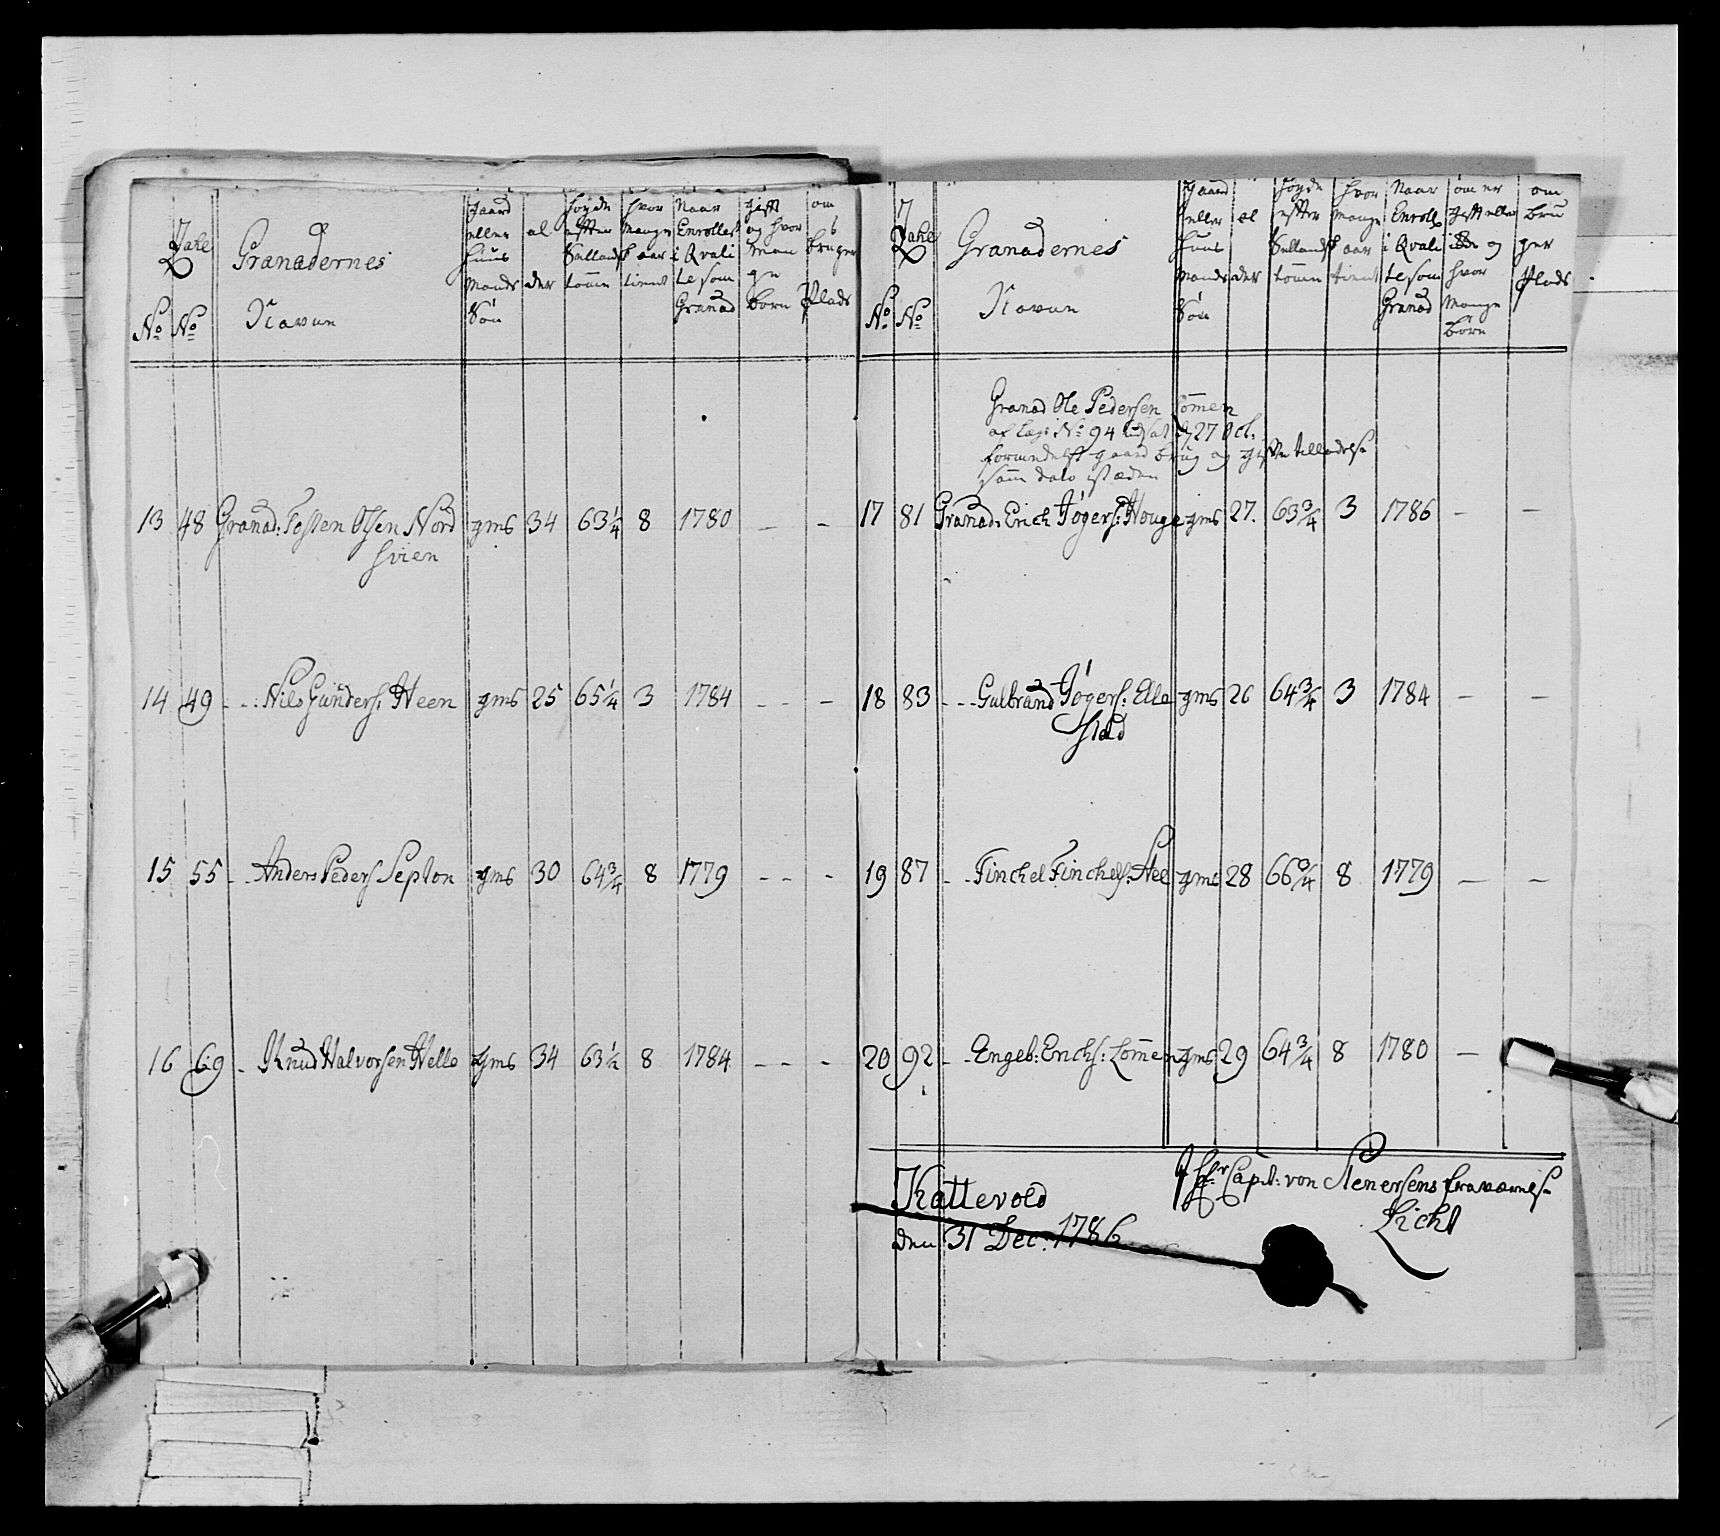 Tahl
No No
Granadernes
Navun
gaard eller huus mands Søn
al der
høyde efter Sællands tomm
hvor mange aar tient
Naar Enrolles i Qvali te som Granad
gift og hvor man ge børn
om bruger Plads
13 48 Granad: Tosten Olsen Nord gms 34 63¼ 8 1780 – –
svien
14 49 - - : Nils Gunders: Heen gms 25 65¼ 3 1784 - - –
15 55 - - Anders Peders Septon gms 30 64¾ 8 1779 - - -
16 69 - Knud Halvorsen Helle gms 34 63½ 8 1784 - - -
Tahl
No No
Granadernes
Navun
gaard eller huus mands Søn
al der
høyde efter Sællands tomm
hvor mange aar tient
Naar Enroll i Qvali te som Granad
om er gift eller og hvor mange børn
om bru ger Plads
Granad Ole Pedersen Lomen
af Lægs No 94 udsat d 27 Oct.
formedelst gaard brug og gifte tilladelse
som dato istæden
17 81 Granad: Erich Jøgers: Houge gms 27. 63¾ 3 1786 – –
18 83 - - - Gulbrand Jøgers: Elle gms 26 64¾ 3 1784 – –
stad
19 87 - - Finckel Finckels: Hee gms 28 66¾ 8 1779 – –
20 92 - - Engeb: Erichs: Lomen gms 29 64¾ 8 1780 –
Kattevold
den 31 Dec: 1786
I Hr Capit: von Stenersens fraværelse
Licht